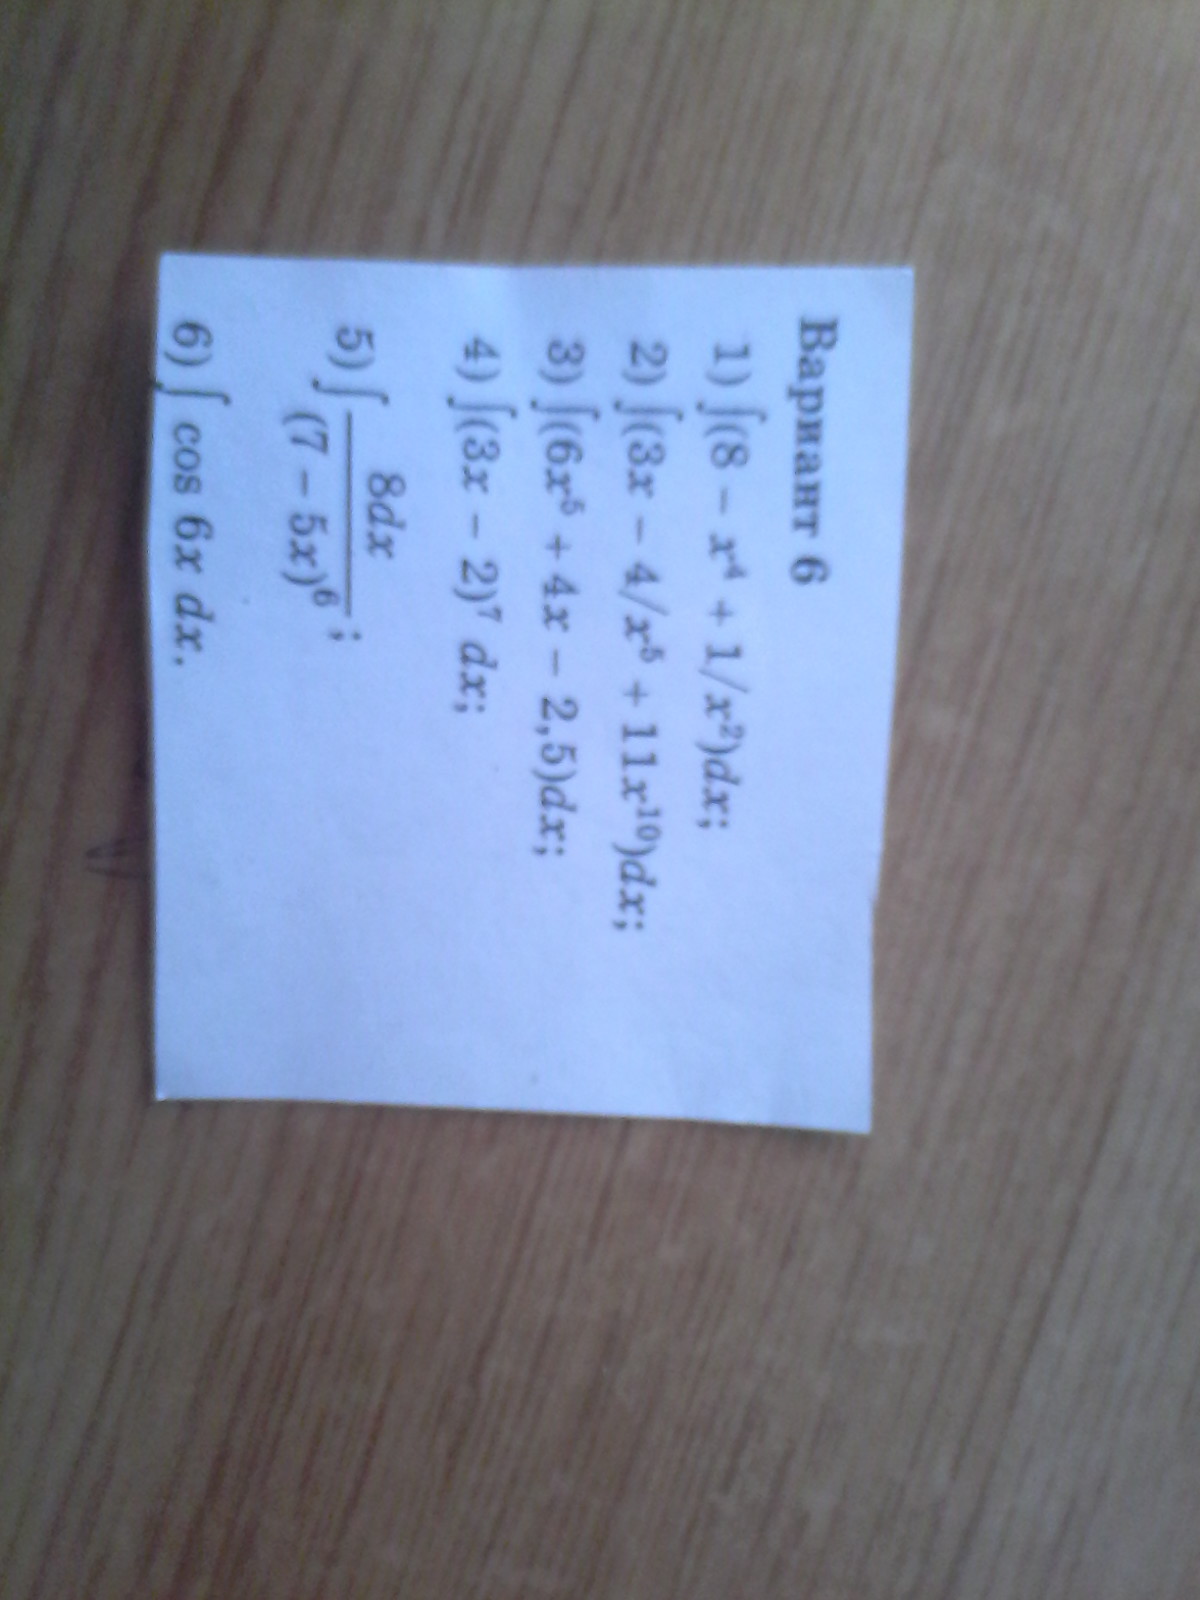 Вариант 6
1) ∫(8 − x⁴ + 1/x²)dx;
2) ∫(3x − 4/x⁵ + 11x¹⁰)dx;
3) ∫(6x⁵ + 4x − 2,5)dx;
4) ∫(3x − 2)⁷ dx;
5) ∫ 8dx/(7 − 5x)⁶;
6) ∫ cos 6x dx.